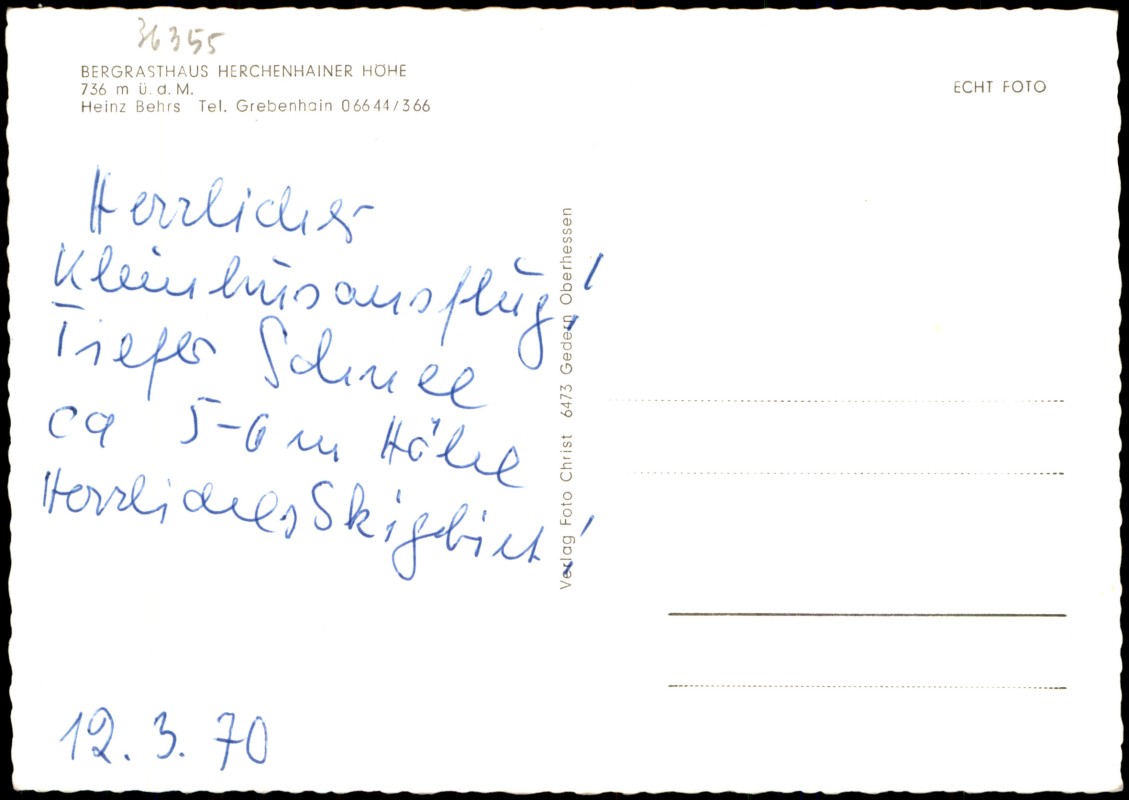 36355
BERGRASTHAUS HERCHENHAINER HÖHE
736 m ü. d. M.
Heinz Behrs Tel. Grebenhain 06644/366
ECHT FOTO
Herrlicher
Kleinbusausflug!
Tiefer Schnee
ca 5-6 m Höhe
Herrliches Skigebiet!
12. 3. 70
Verlag Foto Christ 6473 Gedern Oberhessen